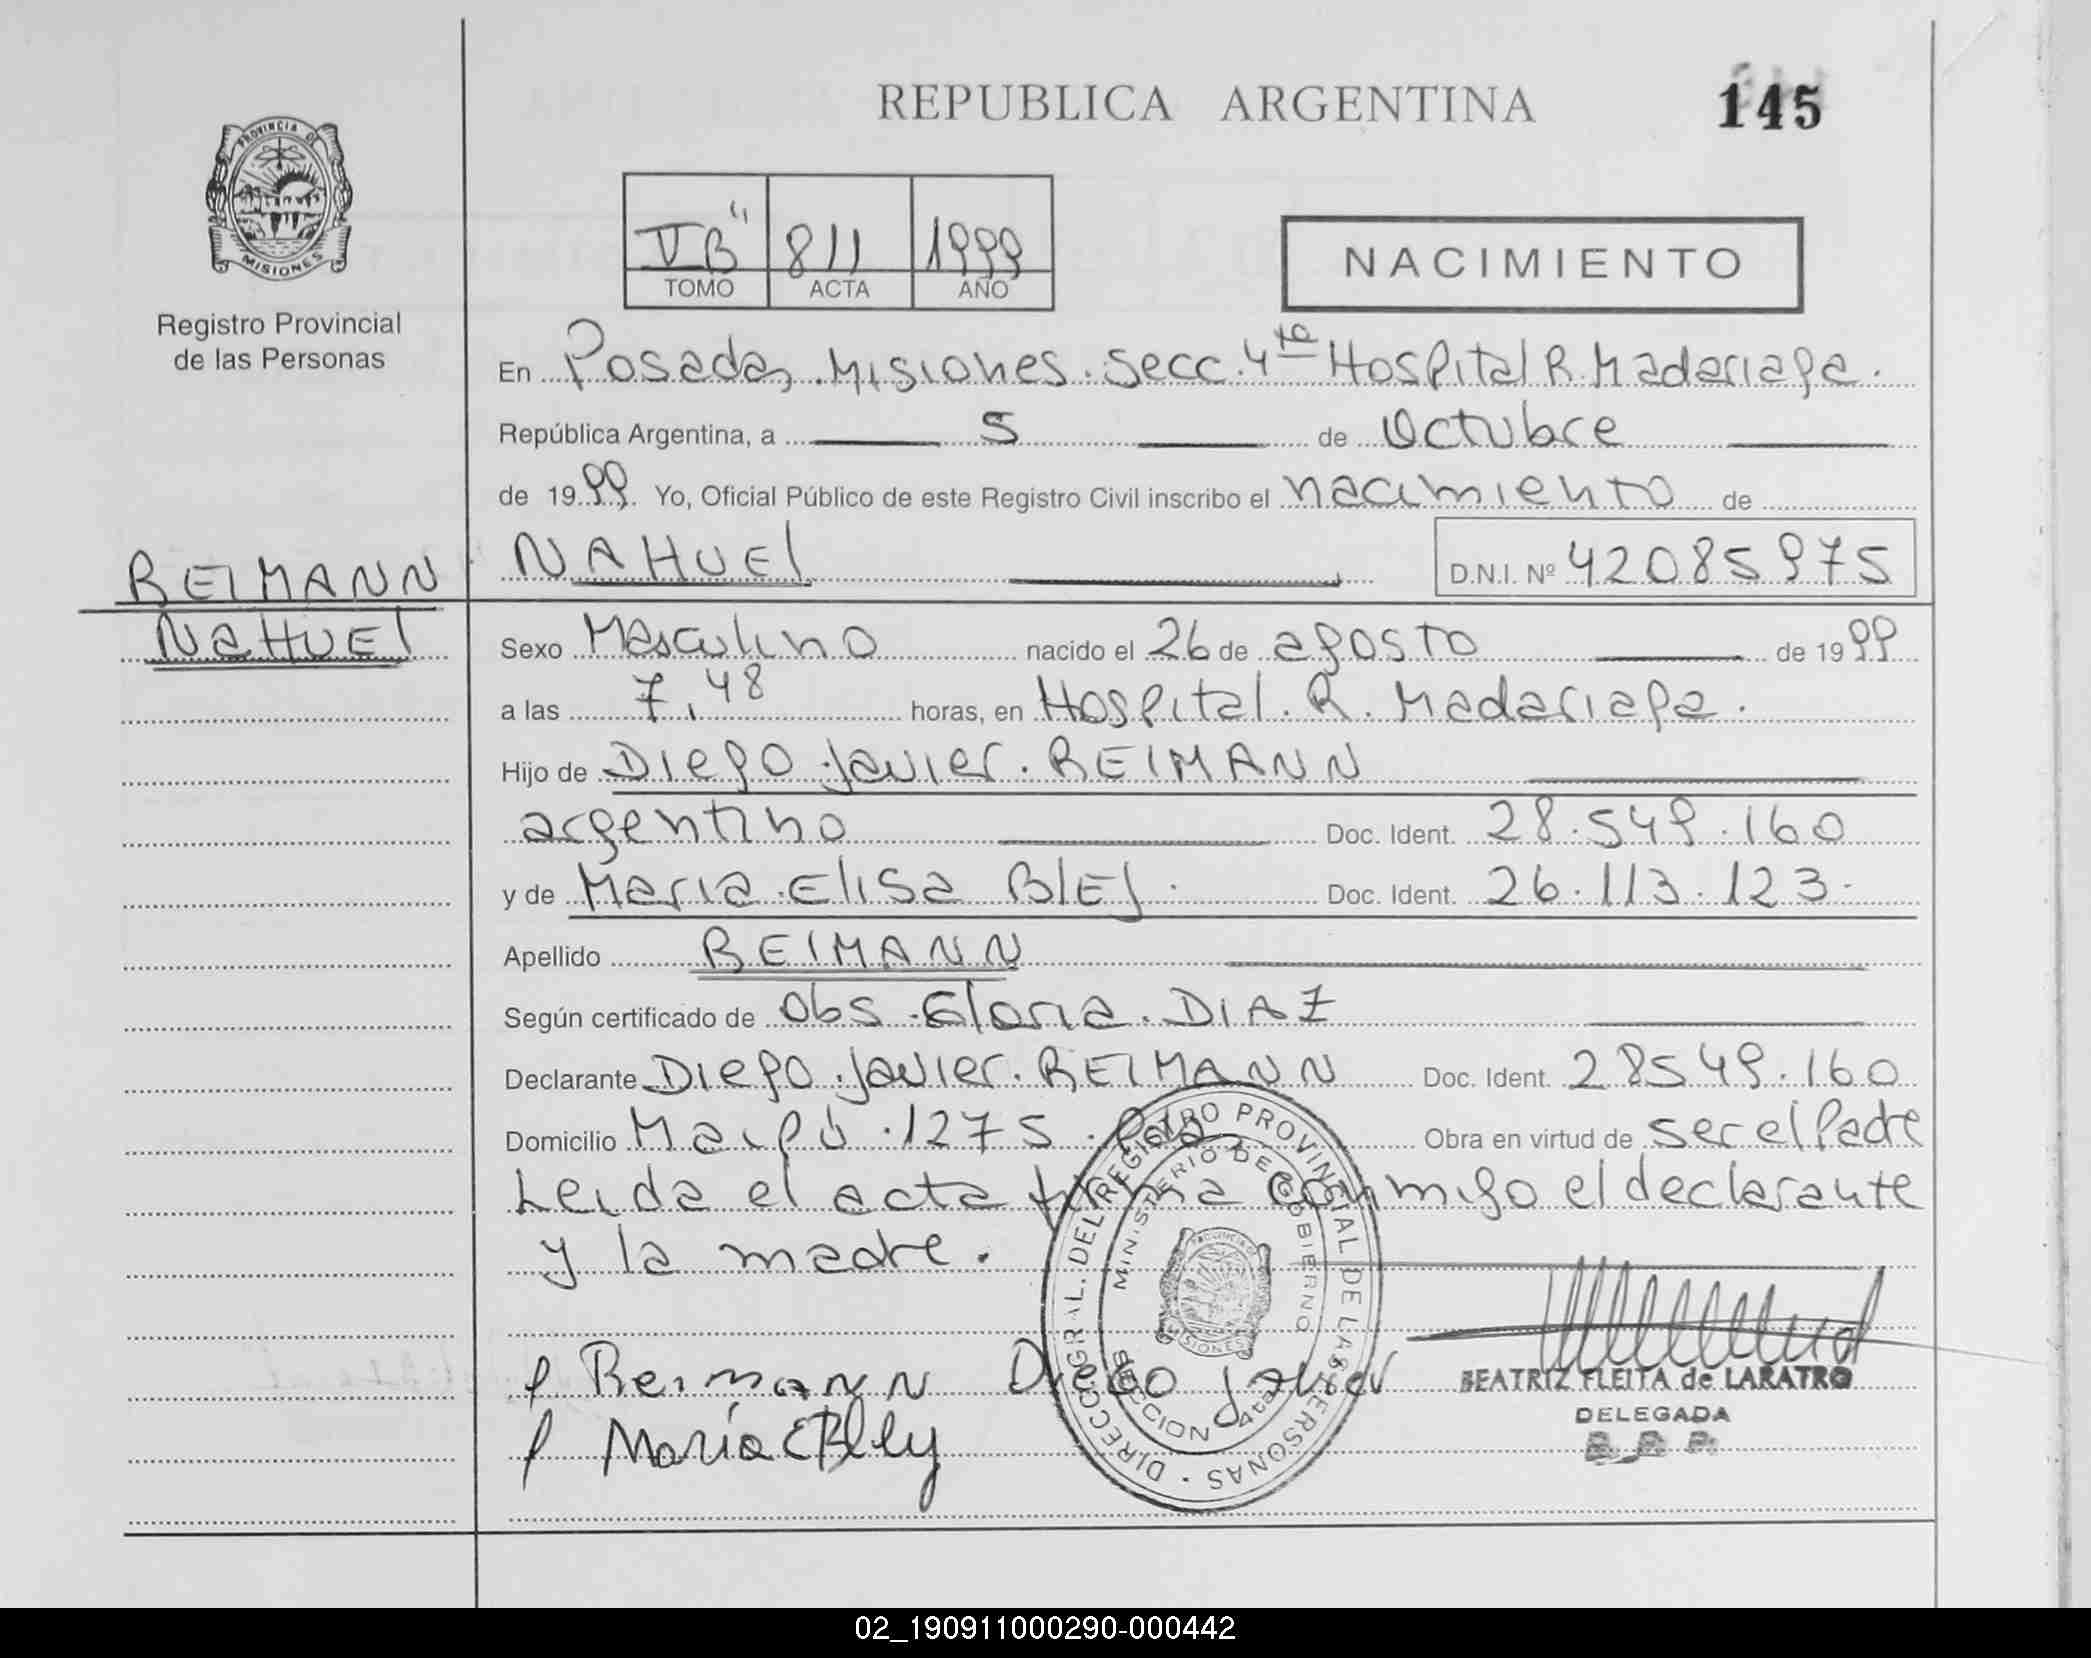 REPUBLICA ARGENTINA
145
PROVINCIA DE
MISIONES
Registro Provincial
de las Personas
V "B" 811 1999
TOMO ACTA AÑO
NACIMIENTO
En Posadas, Misiones. Secc. 4ta Hospital R. Madariaga.
República Argentina, a 5 de Octubre
de 1999. Yo, Oficial Público de este Registro Civil inscribo el nacimiento de
REIMANN NAHUEl D.N.I. Nº 42085975
NaHUEl Sexo Masculino nacido el 26 de agosto de 1999
a las 7,48 horas, en Hospital. R. Madariaga.
Hijo de Diego Javier. REIMANN
argentino Doc. Ident. 28.549.160
y de Maria Elisa BlEJ. Doc. Ident. 26.113.123.
Apellido REIMANN
Según certificado de Obs. Gloria. DIAZ
Declarante Diego Javier. REIMANN Doc. Ident. 28549.160
Domicilio Maipú 1275. Pdas. Obra en virtud de ser el Padre
Leida el acta firma conmigo el declarante
y la madre.
DIRECC. GRAL. DEL REGISTRO PROVINCIAL DE LAS PERSONAS
MINISTERIO DE GOBIERNO
PROVINCIA DE
MISIONES
SECCION 4ta
Reimann Diego Javier
BEATRIZ FLEITA de LARATRO
DELEGADA
R. P. P.
María E Blej
02_190911000290-000442